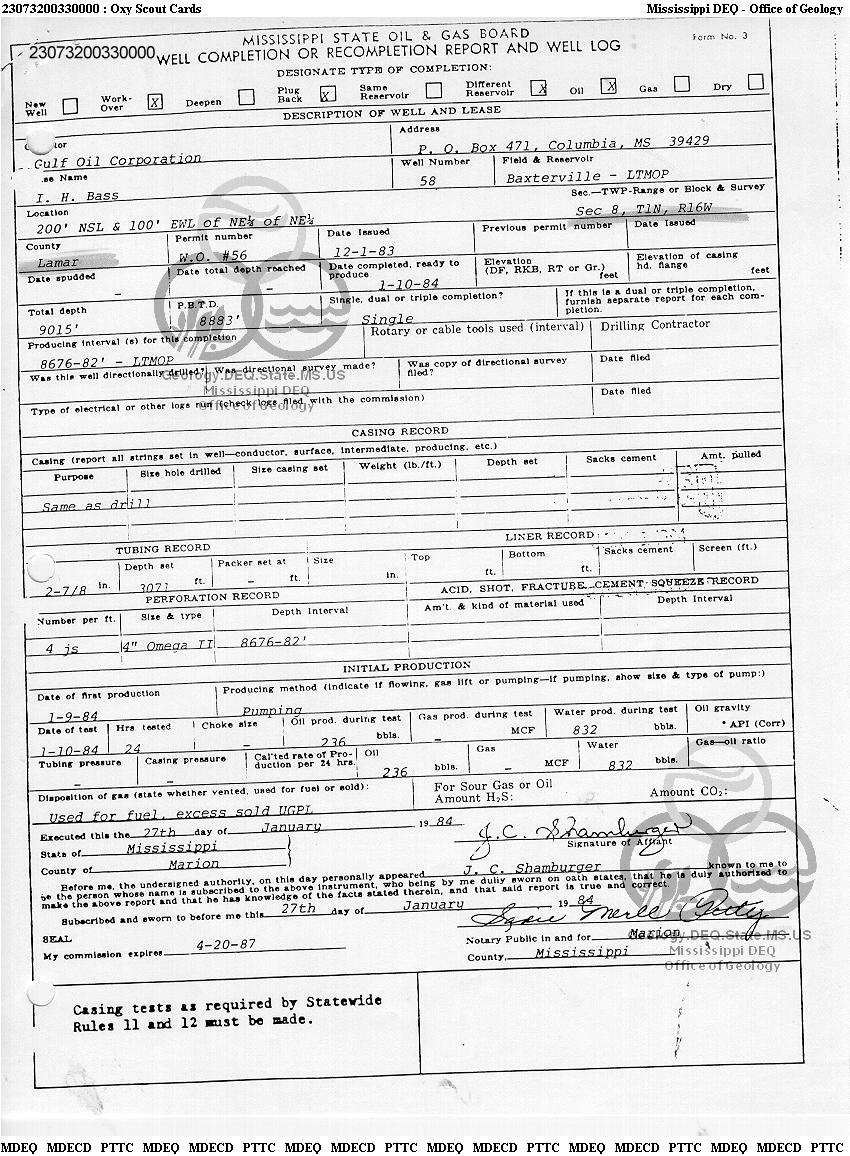 23073200330000 : Oxy Scout Cards Mississippi DEQ - Office of Geology
MISSISSIPPI STATE OIL & GAS BOARD Form No. 3
23073200330000
WELL COMPLETION OR RECOMPLETION REPORT AND WELL LOG
DESIGNATE TYPE OF COMPLETION:
New Well Work-Over X Deepen Plug Back X Same Reservoir Different Reservoir X Oil X Gas Dry
DESCRIPTION OF WELL AND LEASE
Address
Gulf Oil Corporation P. O. Box 471, Columbia, MS 39429
se Name Well Number Field & Reservoir
I. H. Bass 58 Baxterville - LTMOP
Location Sec.—TWP-Range or Block & Survey
200' NSL & 100' EWL of NE¼ of NE¼ Sec 8, T1N, R16W
County Permit number Date Issued Previous permit number Date Issued
Lamar W.O. #56 12-1-83
Date spudded Date total depth reached Date completed, ready to produce Elevation (DF, RKB, RT or Gr.) feet Elevation of casing hd. flange feet
- - 1-10-84
Total depth P.B.T.D. Single, dual or triple completion? If this is a dual or triple completion, furnish separate report for each completion.
9015' 8883' Single
Producing interval (s) for this completion Rotary or cable tools used (interval) Drilling Contractor
8676-82' - LTMOP
Was this well directionally drilled? Was directional survey made? Was copy of directional survey filed? Date filed
Geology.DEQ.State.MS.US
Mississippi DEQ
Office of Geology
Type of electrical or other logs run (check logs filed with the commission) Date filed
CASING RECORD
Casing (report all strings set in well—conductor, surface, intermediate, producing, etc.)
Purpose Size hole drilled Size casing set Weight (lb./ft.) Depth set Sacks cement Amt. pulled
Same as drill
TUBING RECORD LINER RECORD
Depth set Packer set at Size Top Bottom Sacks cement Screen (ft.)
2-7/8 in. 3071 ft. - ft. in. ft. ft.
PERFORATION RECORD ACID, SHOT, FRACTURE, CEMENT SQUEEZE RECORD
Number per ft. Size & type Depth Interval Am't. & kind of material used Depth Interval
4 js 4" Omega II 8676-82'
INITIAL PRODUCTION
Date of first production Producing method (indicate if flowing, gas lift or pumping—if pumping, show size & type of pump:)
1-9-84 Pumping
Date of test Hrs. tested Choke size Oil prod. during test Gas prod. during test Water prod. during test Oil gravity
1-10-84 24 - 236 bbls. - MCF 832 bbls. ° API (Corr)
Tubing pressure Casing pressure Cal'ted rate of Production per 24 hrs. Oil Gas Water Gas—oil ratio
- - 236 bbls. - MCF 832 bbls.
Disposition of gas (state whether vented, used for fuel or sold): For Sour Gas or Oil Amount H2S: Amount CO2:
Used for fuel, excess sold UGPL
Executed this the 27th day of January 19 84 J.C. Shamburger
State of Mississippi Signature of Affiant
County of Marion
Before me, the undersigned authority, on this day personally appeared J. C. Shamburger known to me to
be the person whose name is subscribed to the above instrument, who being by me dully sworn on oath states, that he is duly authorized to
make the above report and that he has knowledge of the facts stated therein, and that said report is true and correct.
Subscribed and sworn to before me this 27th day of January 19 84
SEAL Notary Public in and for Marion
My commission expires 4-20-87 County, Mississippi
Geology.DEQ.State.MS.US
Mississippi DEQ
Office of Geology
Casing tests as required by Statewide
Rules 11 and 12 must be made.
MDEQ MDECD PTTC MDEQ MDECD PTTC MDEQ MDECD PTTC MDEQ MDECD PTTC MDEQ MDECD PTTC MDEQ MDECD PTTC